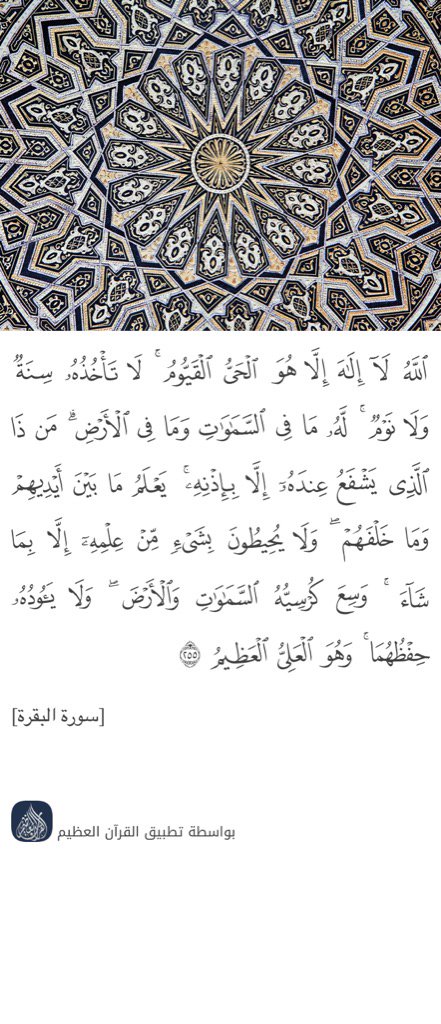 ٱللَّهُ لَآ إِلَٰهَ إِلَّا هُوَ ٱلۡحَيُّ ٱلۡقَيُّومُۚ لَا تَأۡخُذُهُۥ سِنَةٞ
وَلَا نَوۡمٞۚ لَّهُۥ مَا فِي ٱلسَّمَٰوَٰتِ وَمَا فِي ٱلۡأَرۡضِۗ مَن ذَا
ٱلَّذِي يَشۡفَعُ عِندَهُۥٓ إِلَّا بِإِذۡنِهِۦۚ يَعۡلَمُ مَا بَيۡنَ أَيۡدِيهِمۡ
وَمَا خَلۡفَهُمۡۖ وَلَا يُحِيطُونَ بِشَيۡءٖ مِّنۡ عِلۡمِهِۦٓ إِلَّا بِمَا
شَآءَۚ وَسِعَ كُرۡسِيُّهُ ٱلسَّمَٰوَٰتِ وَٱلۡأَرۡضَۖ وَلَا يَـُٔودُهُۥ
حِفۡظُهُمَاۚ وَهُوَ ٱلۡعَلِيُّ ٱلۡعَظِيمُ ٢٥٥
[سورة البقرة]
بواسطة تطبيق القرآن العظيم